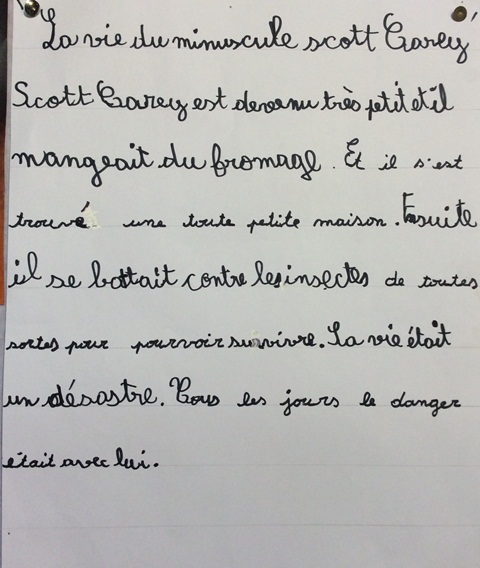 La vie du minuscule scott Carey
Scott Carey est devenu très petit et il
mangeait du fromage. Et il s'est
trouvé une toute petite maison. Ensuite
il se battait contre les insectes de toutes
sortes pour pourvoir survivre. Sa vie était
un désastre. Tous les jours le danger
était avec lui.